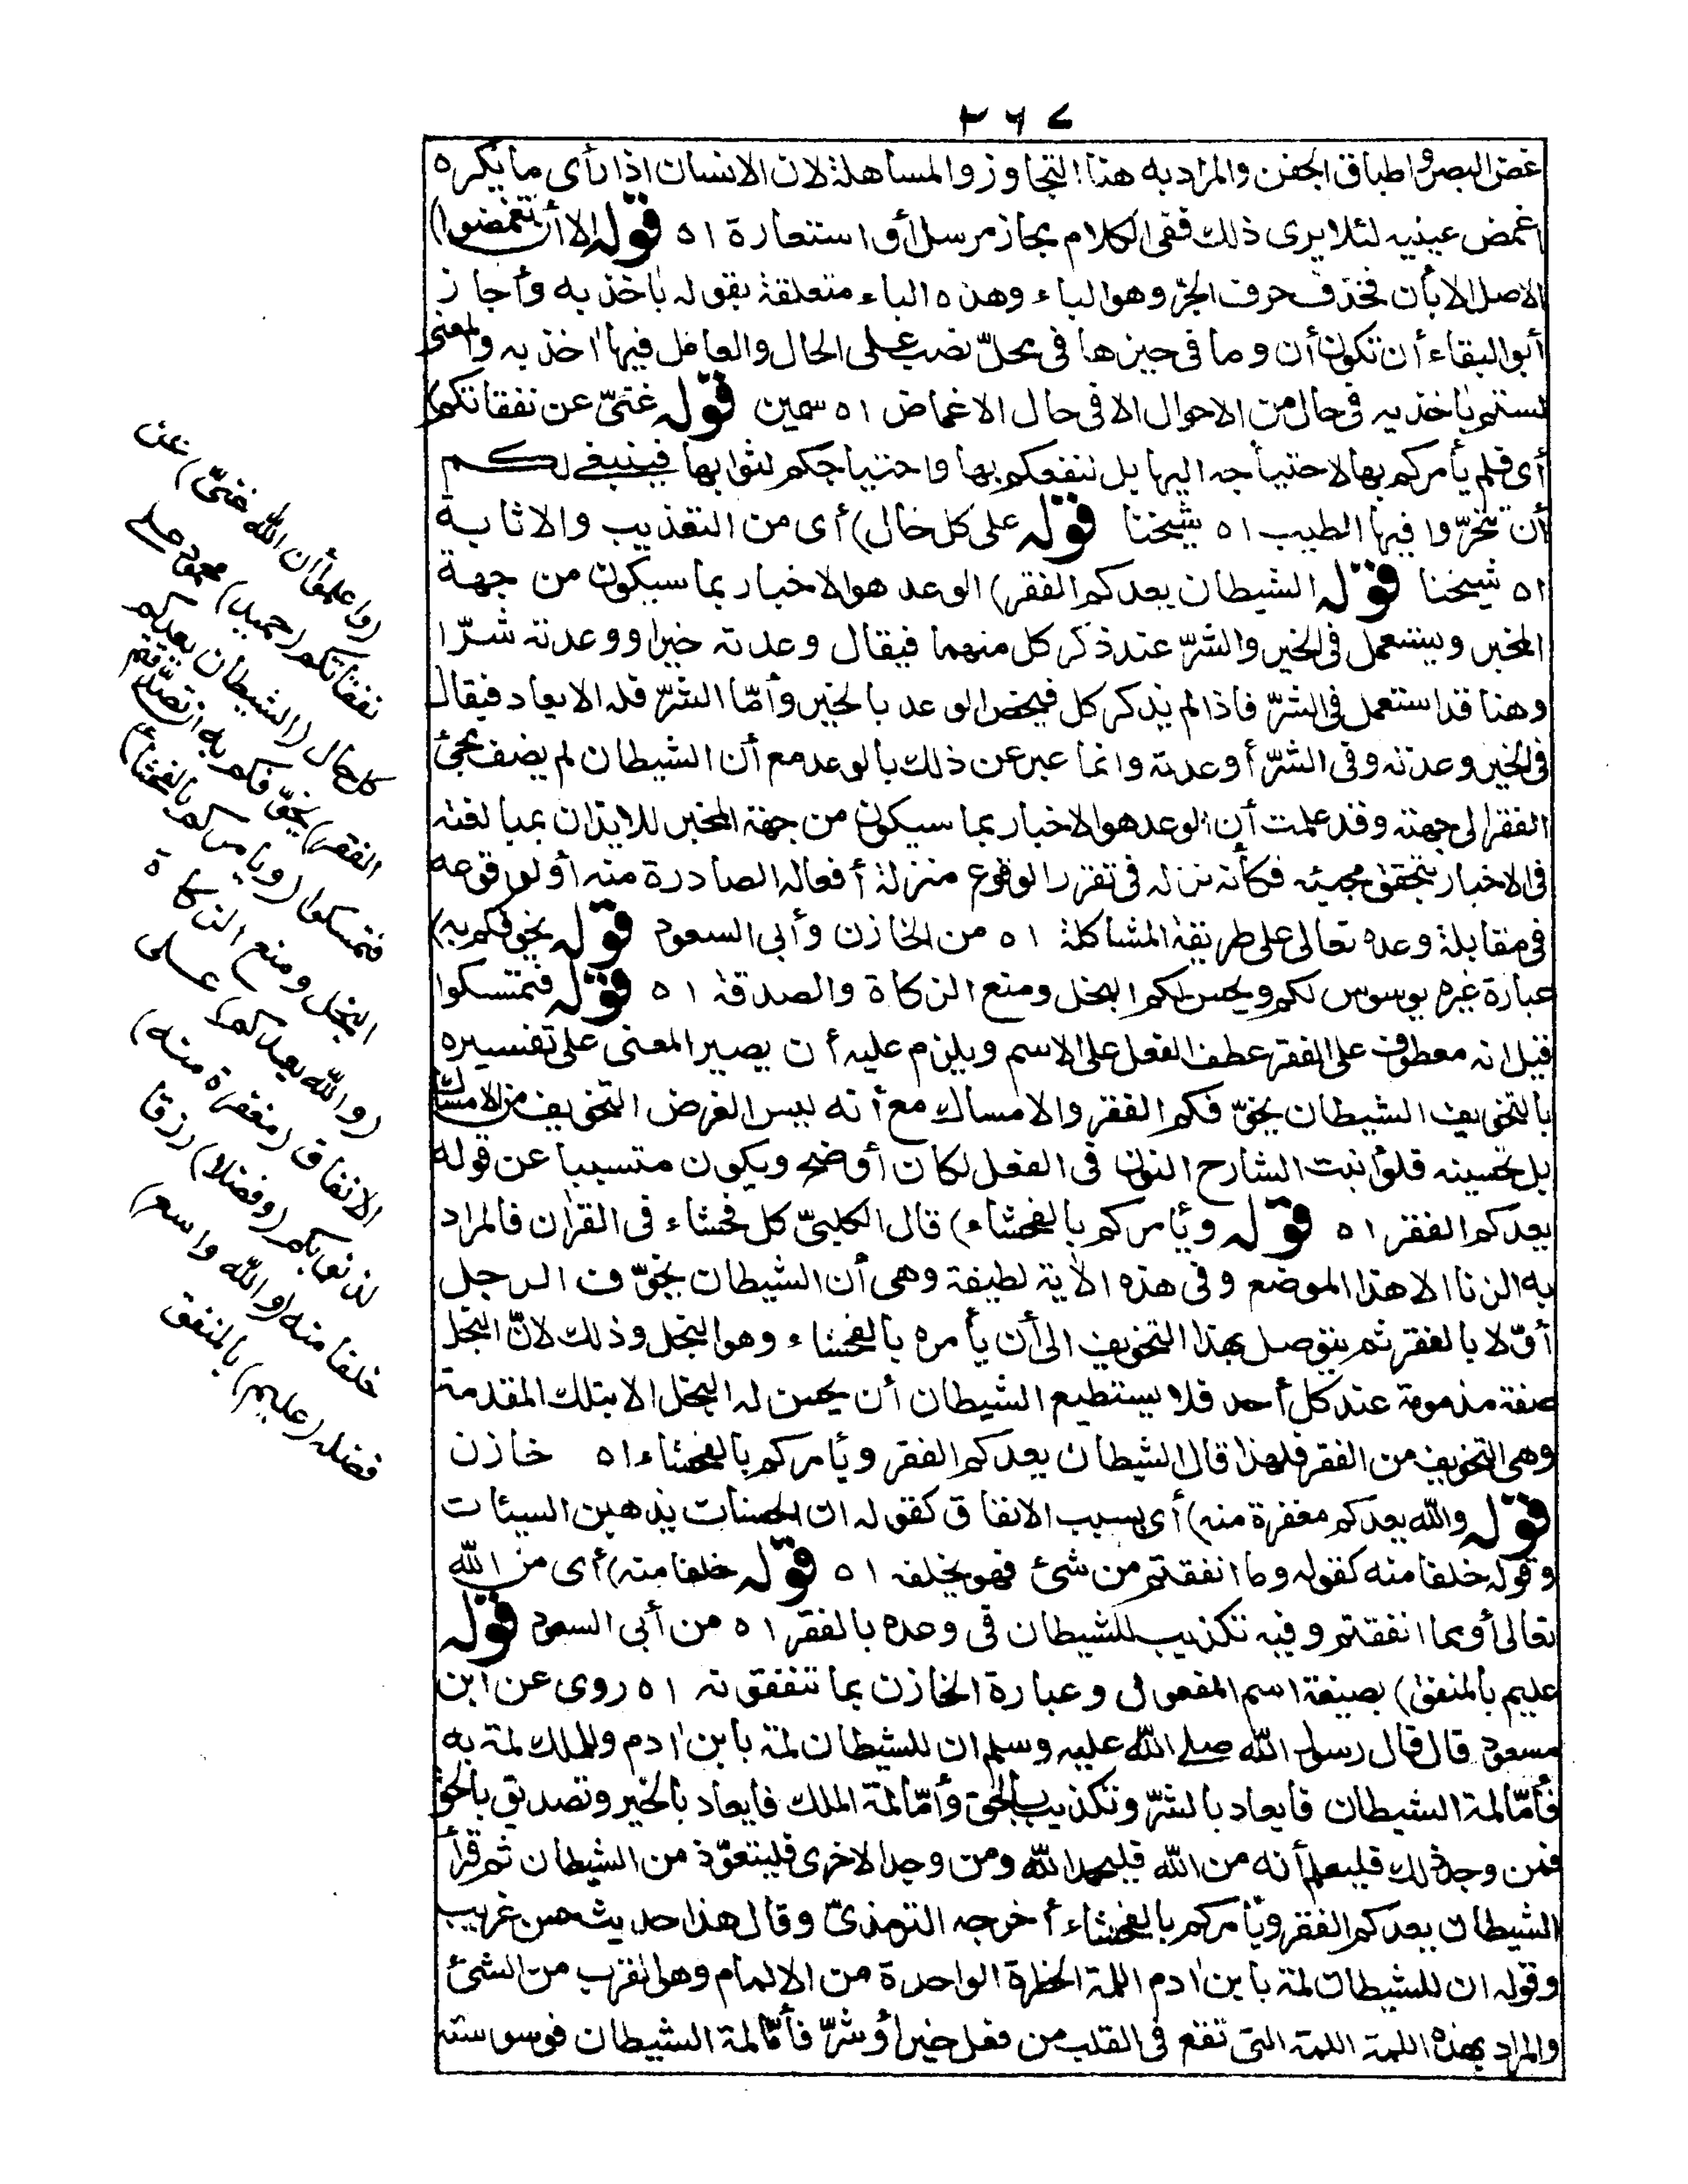 ٢٦٧
غض البصر واطباق الجفن والمراد به هنا التجاوز والمساهلة لان الانسان اذا رأى ما يكره
أغمض عينيه لئلا يرى ذلك ففى الكلام مجاز مرسل أو استعارة اه قوله الا أن تغمضوا)
الاصل الا بأن فحذف حرف الجرّ وهو الباء وهذه الباء متعلقة بقوله باخذيه وأجاز
أبو البقاء أن تكون أن وما فى حيزها فى محلّ نصب على الحال والعامل فيها اخذيه والمعنى
لستم باخذيه فى حال من الاحوال الا فى حال الاغماض اه سمين قوله غنىّ عن نفقاتكم)
أى فلم يأمركم بها لاحتياجه اليها بل لنفعكم بها واحتياجكم لثوابها فينبغى لكم
أن تتحرّوا فيها الطيب اه شيخنا قوله على كل حال) أى من التعذيب والاثابة
اه شيخنا قوله الشيطان يعدكم الفقر) الوعد هو الاخبار بما سيكون من جهة
المخبر ويستعمل فى الخير والشرّ عند ذكر كل منهما فيقال وعدته خيرا ووعدته شرّا
وهنا قد استعمل فى الشرّ فاذا لم يذكر كل فيخص الوعد بالخير وأمّا الشرّ فله الايعاد فيقال
فى الخير وعدته وفى الشرّ أوعدته وانما عبر عن ذلك بالوعد مع أن الشيطان لم يضف مجئ
الفقر الى جهته وقد علمت أن الوعد هو الاخبار بما سيكون من جهة المخبر للايذان بمبالغته
فى الاخبار بتحقق مجيئه فكأنه نزله فى تقرر الوقوع منزلة أفعاله الصادرة منه أو لوقوعه
فى مقابلة وعده تعالى على طريقة المشاكلة اه من الخازن وأبى السعود قوله يخوّفكم به)
عبارة غيره يوسوس لكم ويحسن لكم البخل ومنع الزكاة والصدقة اه قوله فتمسكوا
قيل انه معطوف على الفقر عطف الفعل على الاسم ويلزم عليه أن يصير المعنى على تفسيره
بالتخويف الشيطان يخوّفكم الفقر والامساك مع أنه ليس الغرض التخويف من الامساك
بل تحسينه فلو أثبت الشارح النون فى الفعل لكان أوضح ويكون متسببا عن قوله
يعدكم الفقر اه قوله ويأمركم بالفحشاء) قال الكلبىّ كل فحشاء فى القراٰن فالمراد
به الزنا الا هذا الموضع وفى هذه الاٰية لطيفة وهى أن الشيطان يخوّف الرجل
أوّلا بالفقر ثم يتوصل بهذا التخويف الى أن يأمره بالفحشاء وهو البخل وذلك لانّ البخل
صفة مذمومة عند كل أحد فلا يستطيع الشيطان أن يحسن له البخل الا بتلك المقدمة
وهى التخويف من الفقر فلهذا قال الشيطان يعدكم الفقر ويأمركم بالفحشاء اه خازن
قوله والله يعدكم مغفرة منه) أى بسبب الانفاق كقوله ان الحسنات يذهبن السيئات
وقوله خلفا منه كقوله وما انفقتم من شئ فهو يخلفه اه قوله خلفا منه) أى من الله
تعالى أو مما انفقتم وفيه تكذيب للشيطان فى وعده بالفقر اه من أبى السعود قوله
عليم بالمنفق) بصيغة اسم المفعول وعبارة الخازن بما تنفقونه اه روى عن ابن
مسعود قال قال رسول الله صلى الله عليه وسلم ان للشيطان لمة بابن اٰدم وللملك لمة به
فأمّا لمة الشيطان فايعاد بالشرّ وتكذيب بالحق وأمّا لمة الملك فايعاد بالخير وتصديق بالحق
فمن وجد ذلك فليعلم أنه من الله فليحمد الله ومن وجد الاخرى فليتعوّذ من الشيطان ثم قرأ
الشيطان يعدكم الفقر ويأمركم بالفحشاء أخرجه الترمذىّ وقال هذا حديث حسن غريب
وقوله ان للشيطان لمة بابن اٰدم اللمة الخطرة الواحدة من الالمام وهو القرب من الشئ
والمراد بهذه اللمة اللمة التى تقع فى القلب من فعل خير أو شرّ فأمّا لمة الشيطان فوسوسته
(واعلموا أن الله غنىّ) عن
نفقاتكم (حميد) محمود على
كل حال (الشيطان يعدكم
الفقر) يخوّفكم به ان تصدّقتم
فتمسكوا (ويأمركم بالفحشاء)
البخل ومنع الزكاة
(والله يعدكم) على
الانفاق (مغفرة منه)
لذنوبكم (وفضلا) رزقا
خلفا منه (والله واسع)
فضله (عليم) بالمنفق